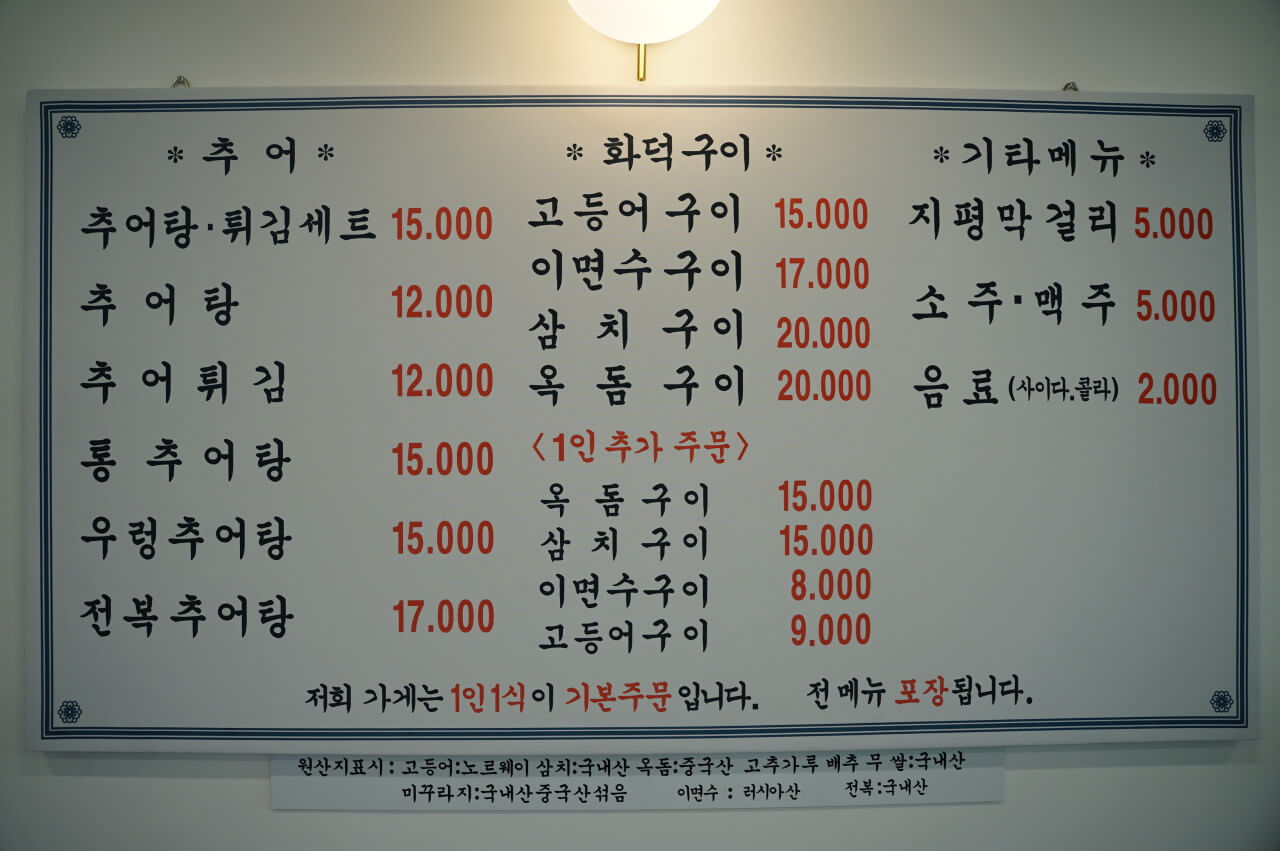 * 추 어 *
추어탕·튀김세트 15.000
추 어 탕 12.000
추 어 튀 김 12.000
통 추 어 탕 15.000
우렁추어탕 15.000
전복추어탕 17.000
* 화덕구이 *
고등어 구이 15.000
이면수 구이 17.000
삼 치 구 이 20.000
옥 돔 구 이 20.000
<1인 추가 주문>
옥 돔 구 이 15.000
삼 치 구 이 15.000
이면수구이 8.000
고등어구이 9.000
* 기타메뉴 *
지평막걸리 5.000
소 주·맥 주 5.000
음 료 (사이다.콜라) 2.000
저희 가게는 1인1식이 기본주문입니다. 전 메뉴 포장됩니다.
원산지표시 : 고등어:노르웨이 삼치:국내산 옥돔:중국산 고추가루 배추 무 쌀:국내산
미꾸라지:국내산중국산섞음 이면수 : 러시아산 전복:국내산